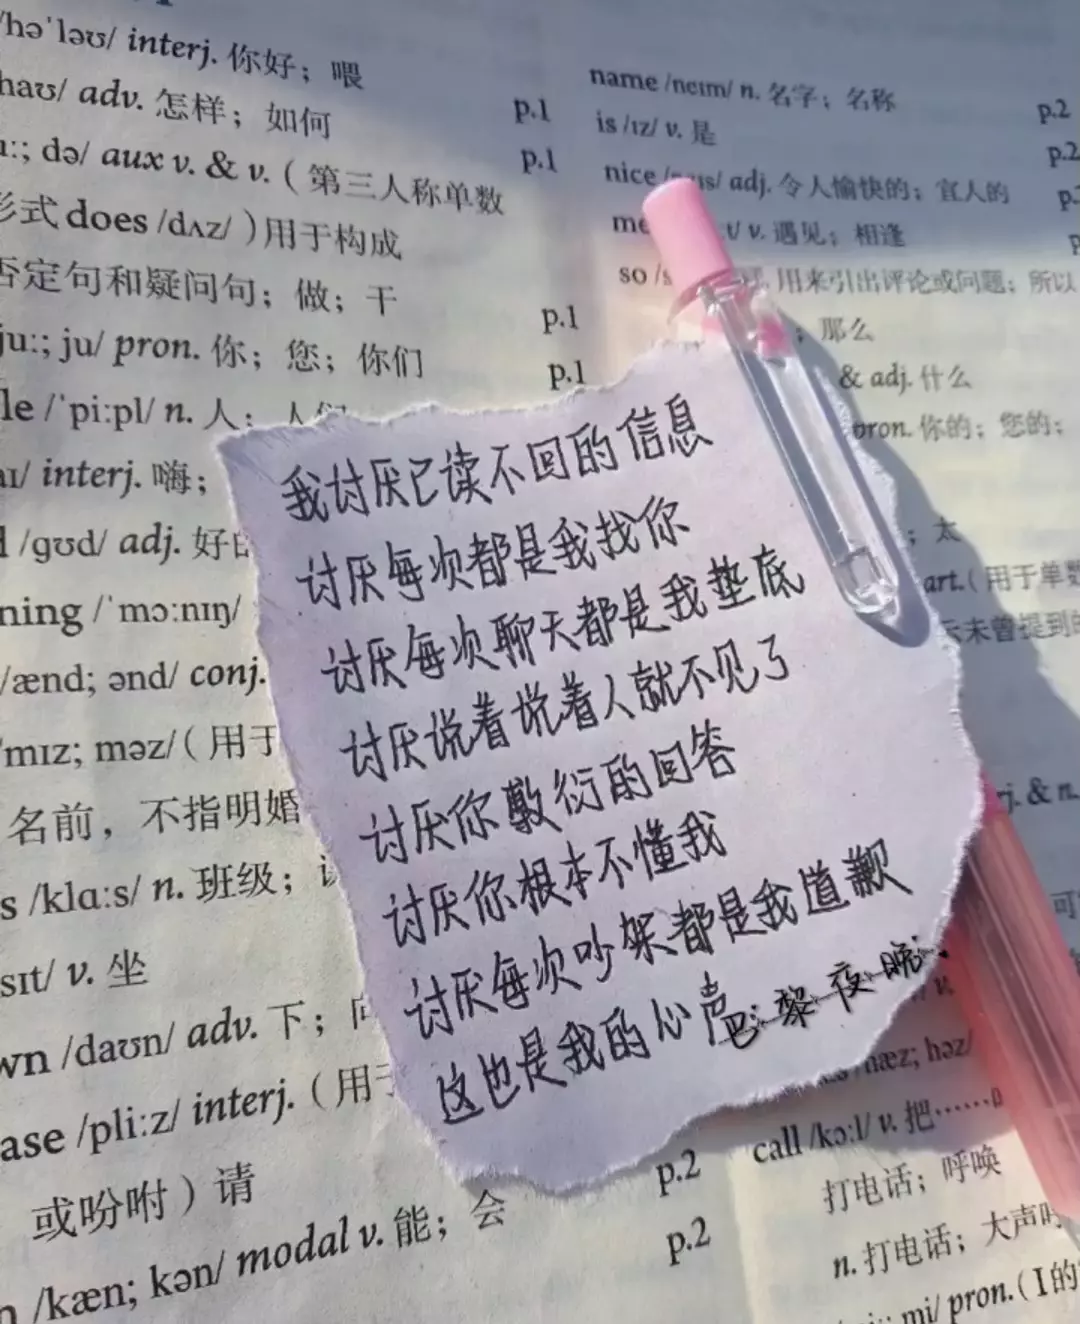 /həˈləʊ/ interj. 你好；喂
haʊ/ adv. 怎样；如何
p.1
uː; də/ aux v. & v.（第三人称单数
p.1
形式 does /dʌz/ ）用于构成
否定句和疑问句；做；干
p.1
juː; ju/ pron. 你；您；你们
p.1
le /ˈpiːpl/ n. 人；人们
aɪ/ interj. 嗨；
d /ɡʊd/ adj. 好的
ning /ˈmɔːnɪŋ/
/ænd; ənd/ conj.
ˈmɪz; məz/（用于
名前，不指明婚
s /klɑːs/ n. 班级；
sɪt/ v. 坐
wn /daʊn/ adv. 下；向
ease /pliːz/ interj.（用于
或吩咐）请
p.2
n /kæn; kən/ modal v. 能；会
p.2
name /neɪm/ n. 名字；名称
p.2
is /ɪz/ v. 是
p.2
nice /naɪs/ adj. 令人愉快的；宜人的
me t/ v. 遇见；相逢
so /s 用来引出评论或问题；所以
；那么
& adj. 什么
pron. 你的；您的；
；太
art.（用于单数
示未曾提到的
我讨厌已读不回的信息
讨厌每次都是我找你
讨厌每次聊天都是我垫底
讨厌说着说着人就不见了
讨厌你敷衍的回答
讨厌你根本不懂我
讨厌每次吵架都是我道歉
这也是我的心声
巴黎夜晚
rj. & n.
可
hæz; həz/
call /kɔːl/ v. 把……
打电话；呼唤
n. 打电话；大声呼
mi/ pron.（I的